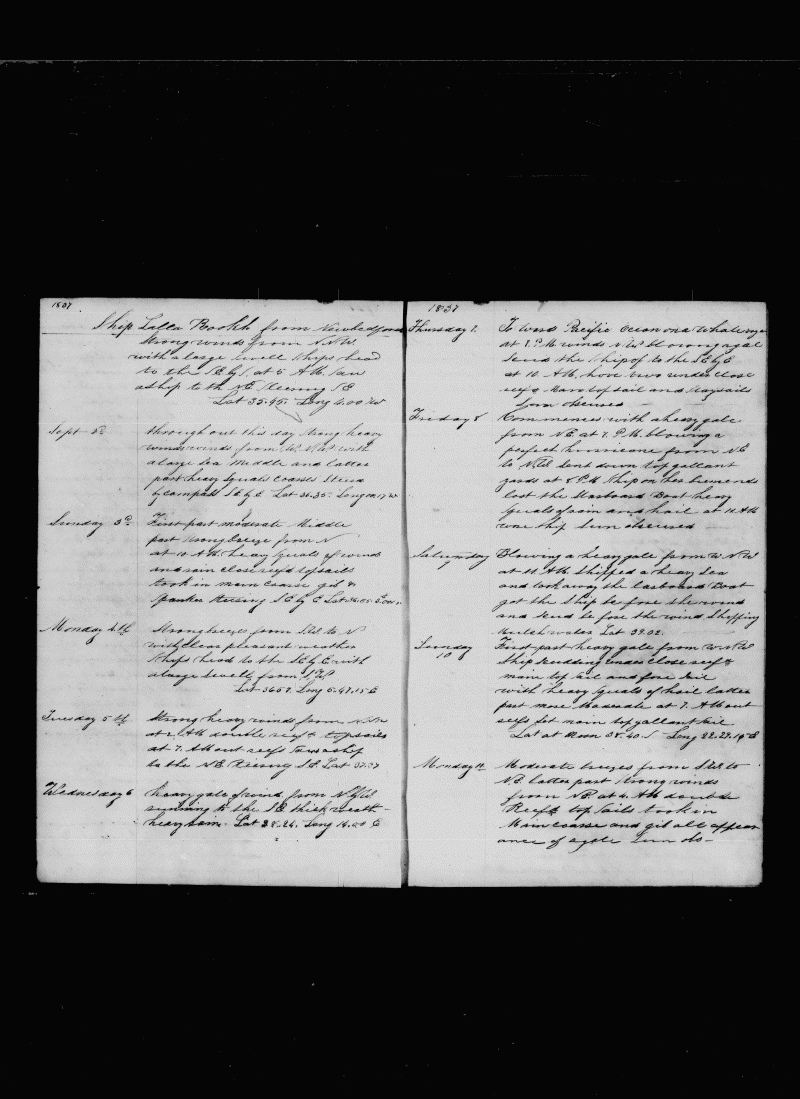 1837
Ship Lalla Rookh from Newbedford
Strong winds from N.N.W.
with a large swell Ships head
to the S.E by S. at 5 A.M. saw
a ship to the N.E Steering S.E
Lat 35.45. Long 4.00 W
Sept 2d throughout this day strong heavy
winds from W.N.W with
a large sea Middle and latter
part heavy squals Coarses
by compass S.E by E Lat 36.35. Long
Sunday 3d First part moderate Middle
part strong breeze from N
at 10 A.M. heavy squals of wind
and rain close reefd topsails
took in main Coarse gib &
spanker steering S.E by E Lat 36.05
Monday 4th Strong breezes from to N
with clear pleasant weather
Ships head to the S.E by E with
a large swell from
Lat 36.57. Long 5.47.15 E
Tuesday 5th Strong heavy winds from
at 2 A.M double reefd topsails
at 7. A.M out reefs saw a ship
to the N.E Steering S.E Lat 37.37
Wednesday 6 heavy gale of wind from
running to the S.E thick weath-
heavy rain. Lat 38.24. Long E
1837
Thursday 7. Toward Pacific Ocean on a whale
at 1. P.M winds N.W blowing a gale
the Ship of to the S.E by E
at 10. A.M, hove two under close
reefd Main topsail and staysails
observed
Friday 8 Commences with a heavy gale
from N.E. at 7. P.M. blowing a
perfect hurricane from N.E
to sent down top gallant
yards at 8 P.M Ship on her beemends
lost the Starboard Boat heavy
squals of rain and hail at
ship observed
Saturday Blowing a heavy gale from W.N.W
at A.M shipped a heavy sea
and took away the Larboard Boat
got the Ship be fore the wind
and be fore the wind Shipping
water Lat 39.02.
Sunday 10 First part heavy gale from W.N.W
Ship scudding under close reefd
main top sail and fore sail
with heavy squals of hail latter
part more Moderate at 7. A.M out
reefs set main top gallant sail
Lat at Noon 38.40. S Long 22.27.15 E
Monday 11 Moderate breezes from to
N.E. latter part strong winds
from N.E at 4. A.M double
Reefd top sails took in
Main coarse and gib all appear
ance of a gale obs-